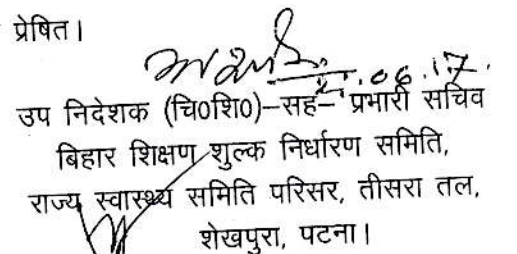 प्रेषित।
.06.17.
उप निदेशक (चि0शि0)–सह– प्रभारी सचिव
बिहार शिक्षण शुल्क निर्धारण समिति,
राज्य स्वास्थ्य समिति परिसर, तीसरा तल,
शेखपुरा, पटना।